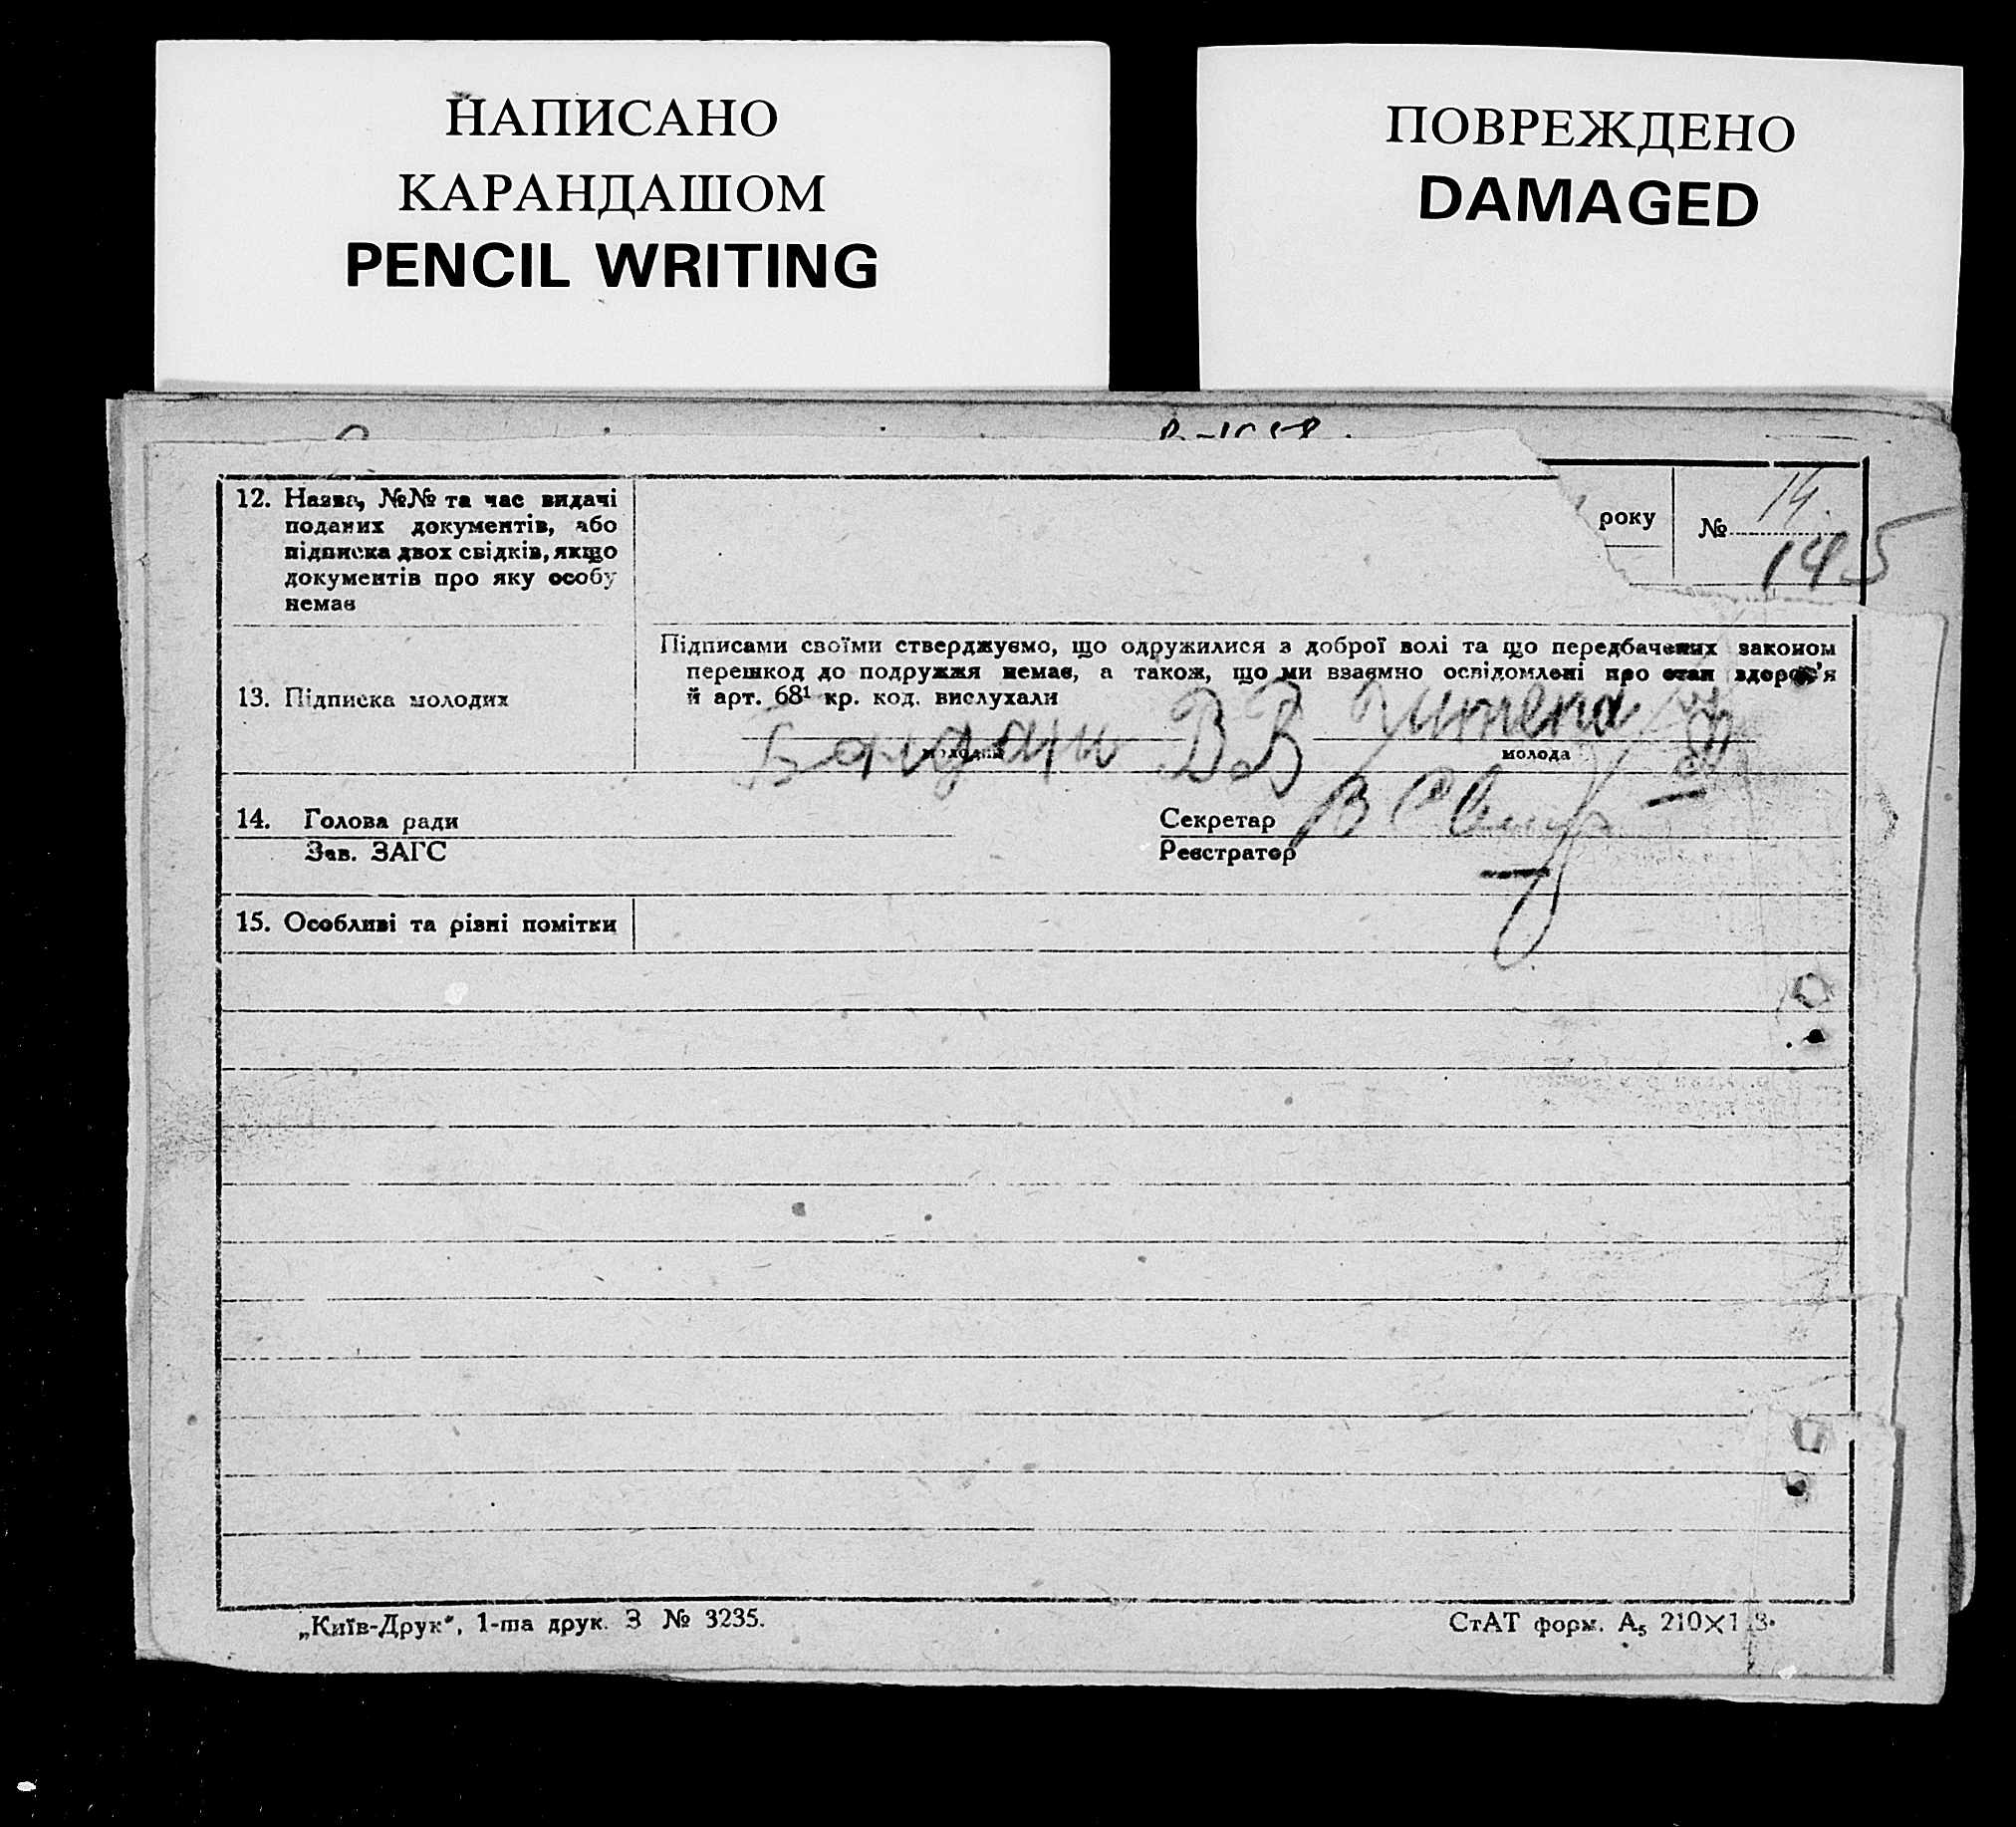 НАПИСАНО
КАРАНДАШОМ
PENCIL WRITING
ПОВРЕЖДЕНО
DAMAGED
12. Назва, №№ та час видачі
поданих документів, або
підписка двох свідків, якщо
документів про яку особу
немає
року
№ 14.
145
13. Підписка молодих
Підписами своїми стверджуємо, що одружилися з доброї волі та що передбачених законом
перешкод до подружжя немає, а також, що ми взаємно освідомлені про стан здоров'я
й арт. 68¹ кр. код. вислухали
В В
молодий
молода
14. Голова ради
Зав. ЗАГС
Секретар
Реєстратор
15. Особливі та різні помітки
„Київ-Друк", 1-ша друк. З № 3235.
СтАТ форм. А₅ 210×1 3.